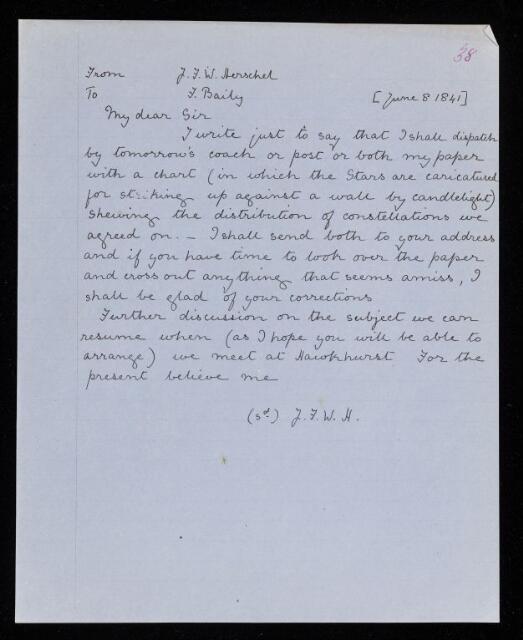 38
From J. F. W. Herschel
To F. Baily [June 8 1841]
My dear Sir
I write just to say that I shall dispatch
by tomorrow's coach or post or both my paper
with a chart (in which the Stars are caricatured
for striking up against a wall by candlelight)
shewing the distribution of constellations we
agreed on. – I shall send both to your address
and if you have time to look over the paper
and cross out anything that seems amiss, I
shall be glad of your corrections
Further discussion on the subject we can
resume when (as I hope you will be able to
arrange) we meet at Hawkhurst For the
present believe me
(sd.) J. F. W. H.